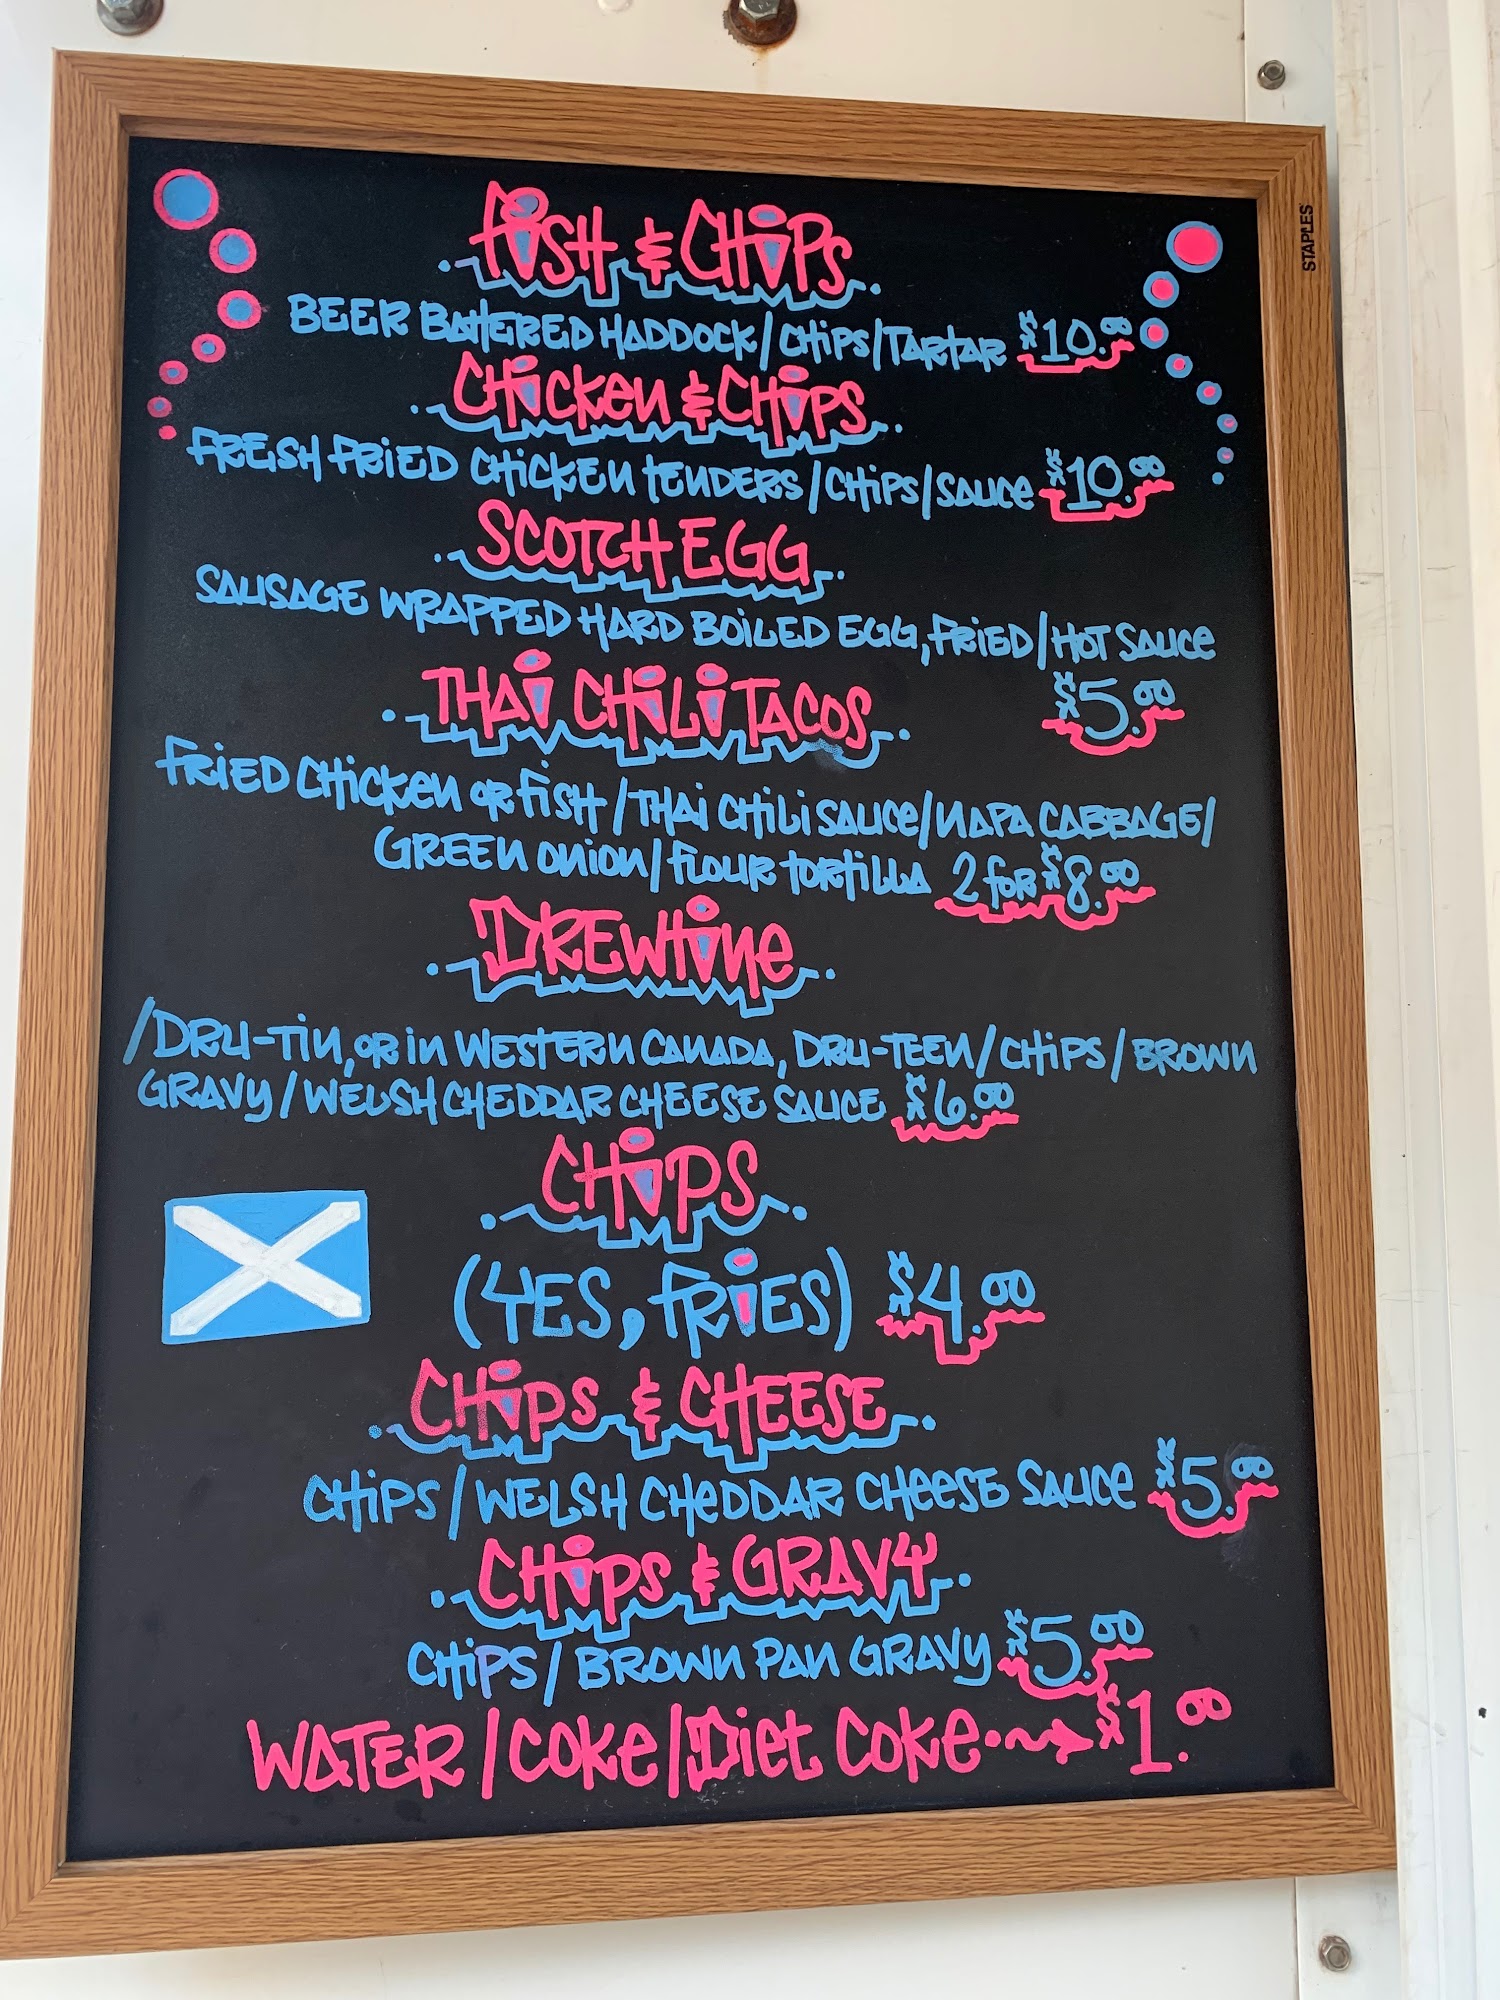 Fish & Chips
Beer Battered Haddock/Chips/Tartar $10.00
Chicken & Chips
Fresh Fried Chicken Tenders/Chips/Sauce $10.00
Scotch Egg
Sausage Wrapped Hard Boiled Egg, Fried/Hot Sauce
$5.00
Thai Chili Tacos
Fried Chicken or Fish/Thai Chili Sauce/Napa Cabbage/
Green Onion/Flour Tortilla 2 for $8.00
Drewtine
/Dru-Tin, or in Western Canada, Dru-Teen/Chips/Brown
Gravy/Welsh Cheddar Cheese Sauce $6.00
Chips
(Yes, Fries) $4.00
Chips & Cheese
Chips/Welsh Cheddar Cheese Sauce $5.00
Chips & Gravy
Chips/Brown Pan Gravy $5.00
Water/Coke/Diet Coke $1.00
STAPLES